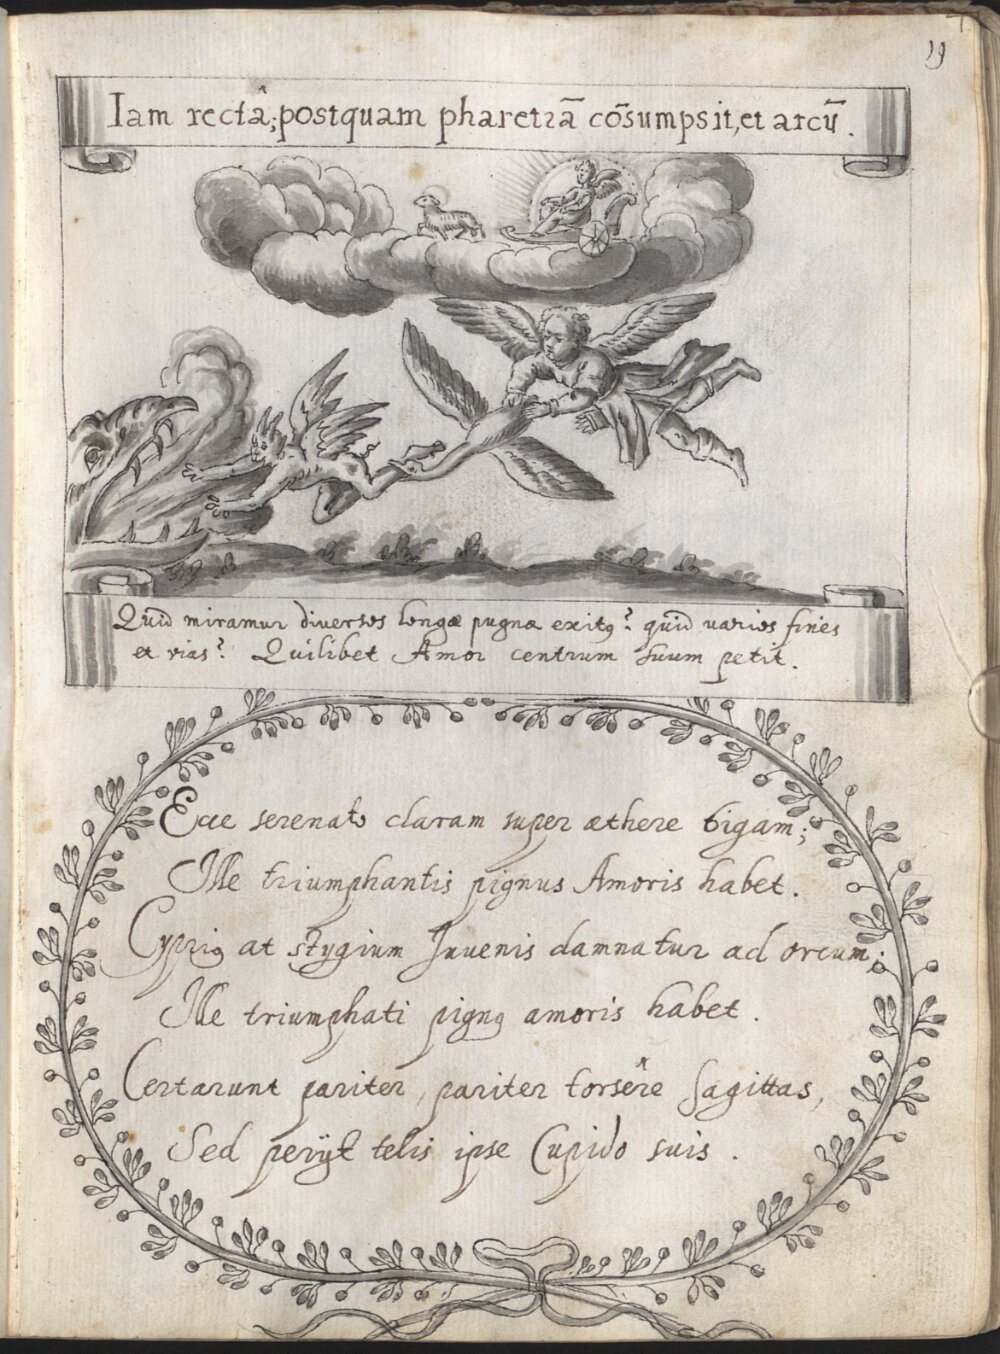 19
Iam rectâ; postquam pharetrā cōsumpsit, et arcū.
Quid miramur diversos longæ pugnæ exitꝰ? quid varios fines
et vias? Quilibet Amor centrum suum petit.
Ecce serenato claram super æthere bigam;
Ille triumphantis pignus Amoris habet.
Cypriꝰ at stygium Juvenis damnatur ad orcum;
Ille triumphati pignꝰ amoris habet.
Certarunt pariter, pariter torsêre sagittas,
Sed perijt telis ipse Cupido suis.